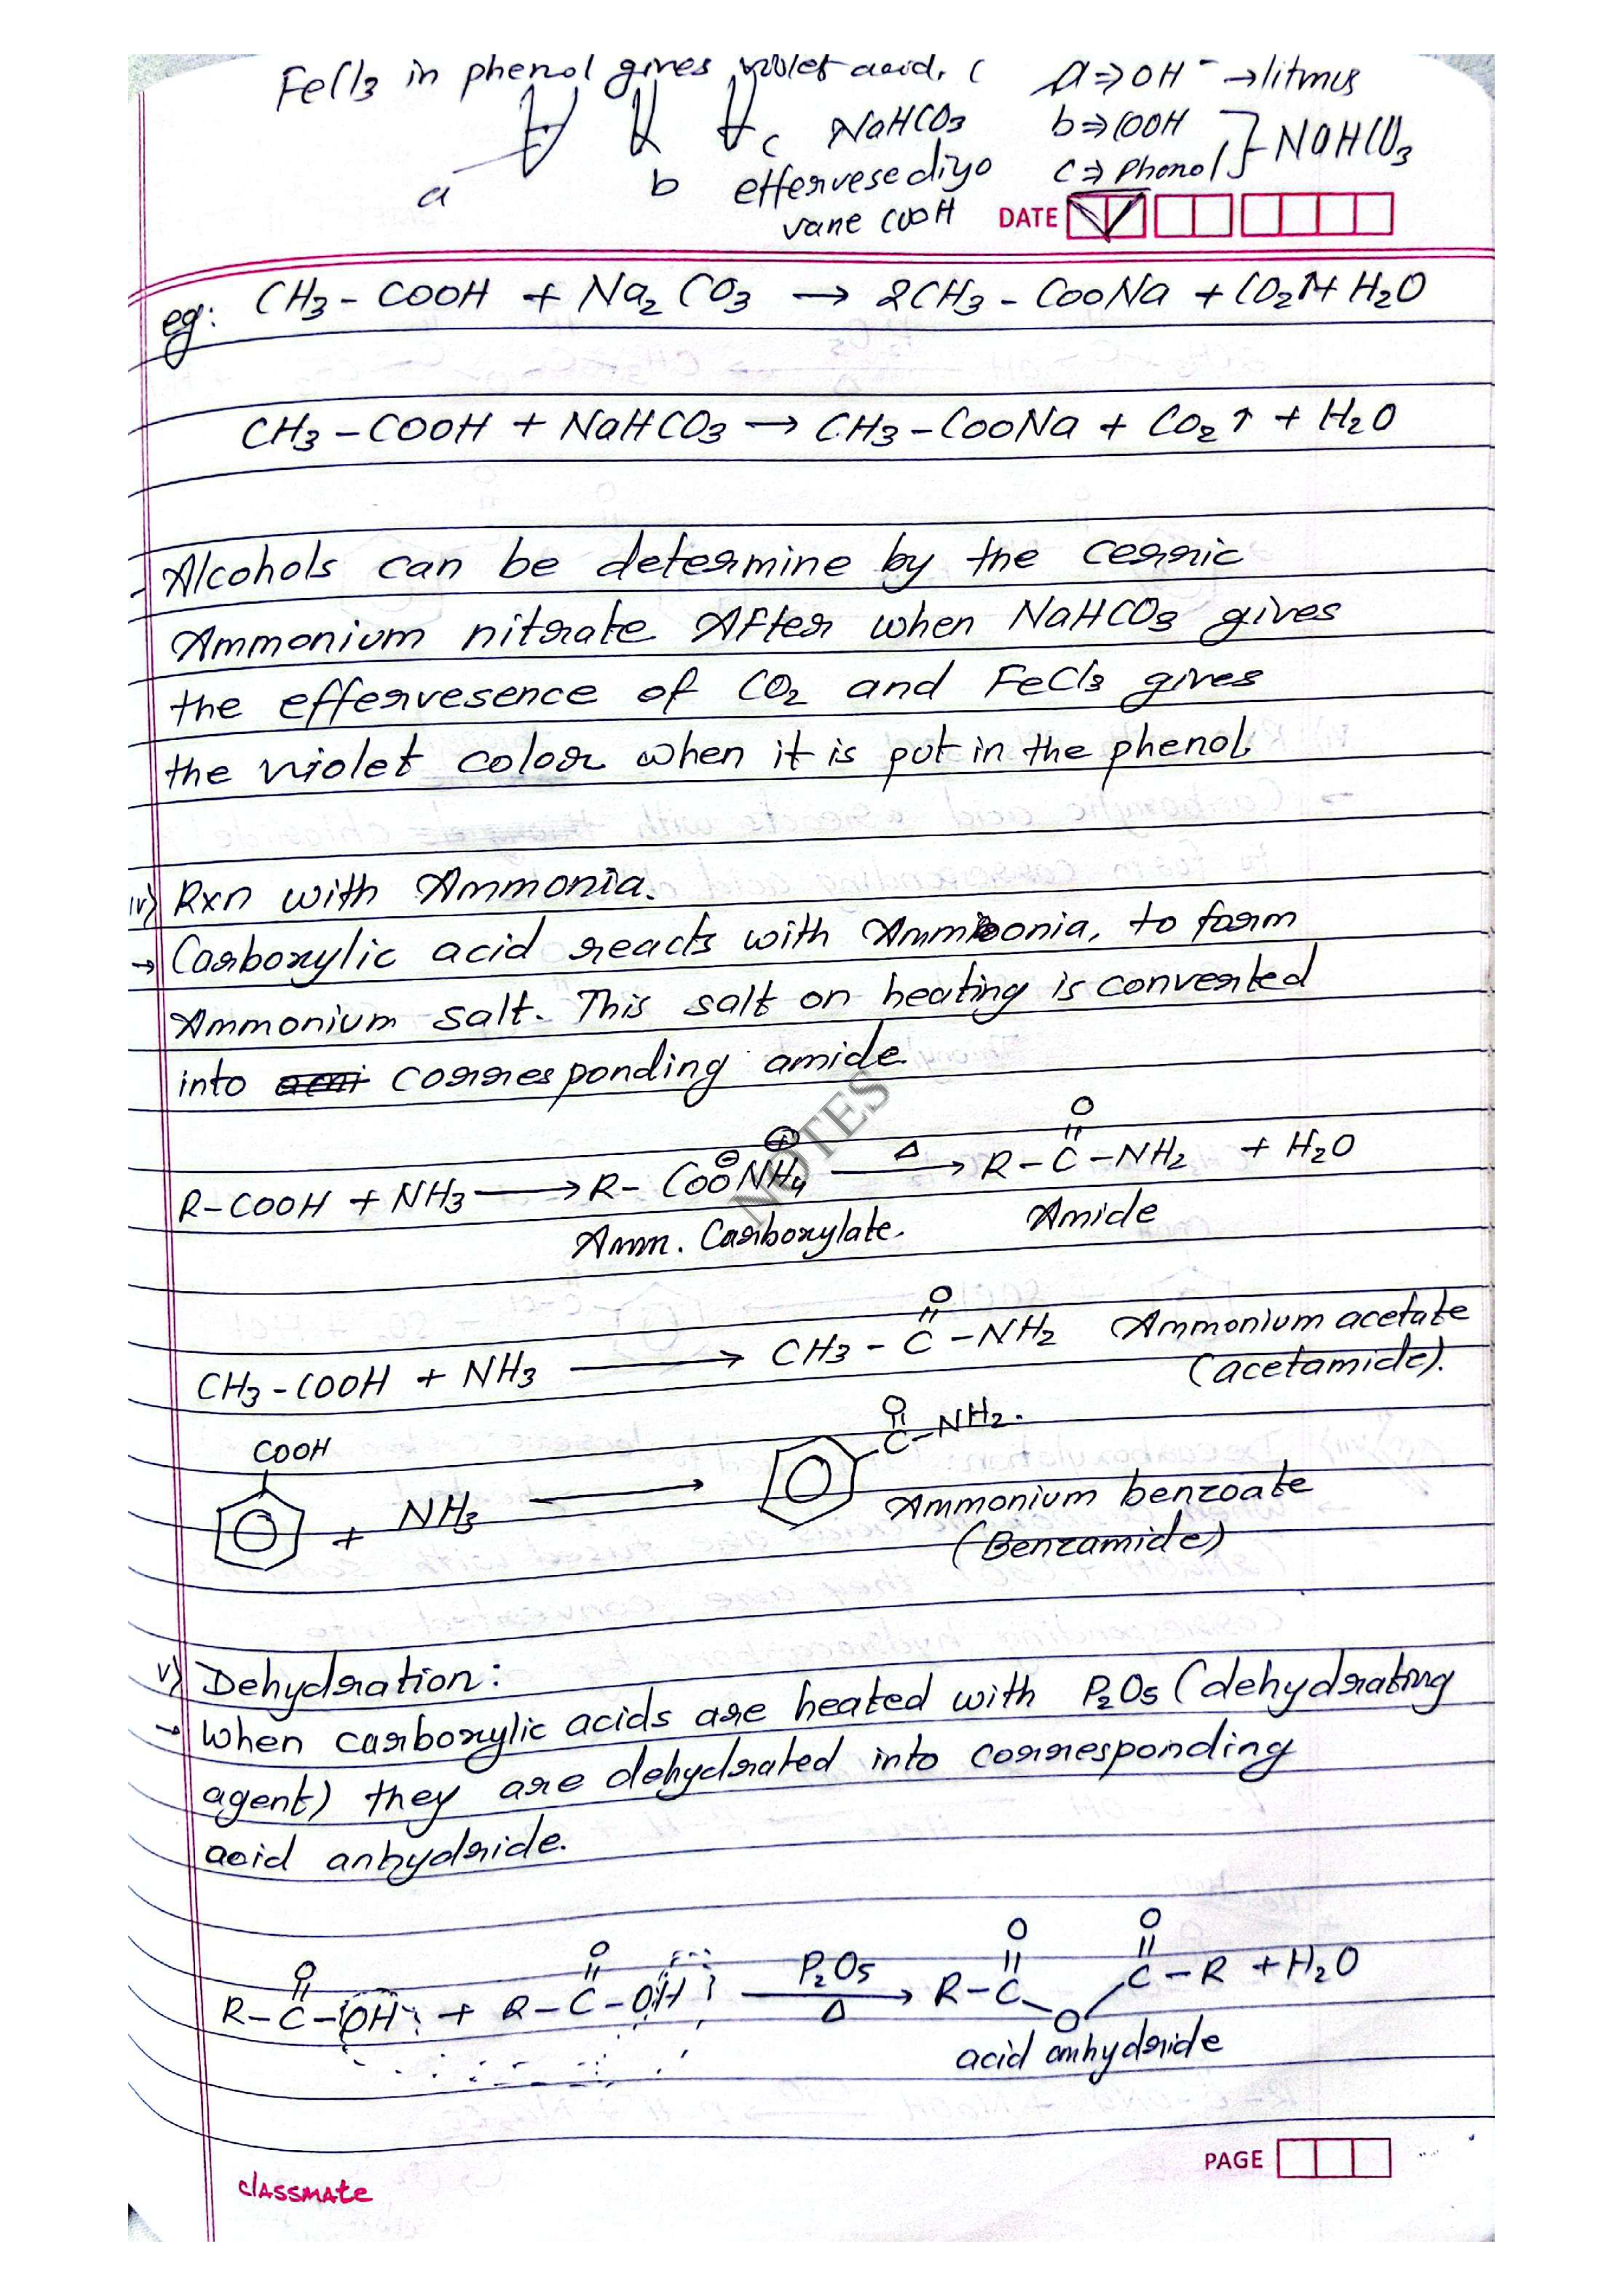 FeCl3 in phenol gives violet acid, (
a ⇒ OH⁻ → litmus
b ⇒ COOH
c ⇒ Phenol } NaHCO3
a b c NaHCO3
effervese diyo
vane COOH
DATE
eg: CH3 - COOH + Na2 CO3 → 2CH3 - COONa + CO2↑ + H2O
CH3 - COOH + NaHCO3 → CH3 - COONa + CO2 ↑ + H2O
Alcohols can be determine by the cerric
Ammonium nitrate After when NaHCO3 gives
the effervesence of CO2 and FeCl3 gives
the violet colour when it is put in the phenol.
iv) Rxn with Ammonia.
→ Carboxylic acid reacts with Ammonia, to form
Ammonium salt. This salt on heating is converted
into corresponding amide.
R-COOH + NH3 → R- COO⊖NH4⊕ —Δ→ R - C(=O) - NH2 + H2O
Amm. Carboxylate. Amide
CH3 - COOH + NH3 → CH3 - C(=O) - NH2 Ammonium acetate
(acetamide).
COOH
+ NH3 → C(=O) - NH2.
Ammonium benzoate
(Benzamide)
v) Dehydration:
→ When carboxylic acids are heated with P2O5 (dehydrating
agent) they are dehydrated into corresponding
acid anhydride.
R - C(=O) - OH + R - C(=O) - OH —P2O5/Δ→ R - C(=O) - O - C(=O) - R + H2O
acid anhydride
PAGE
classmate
NOTES